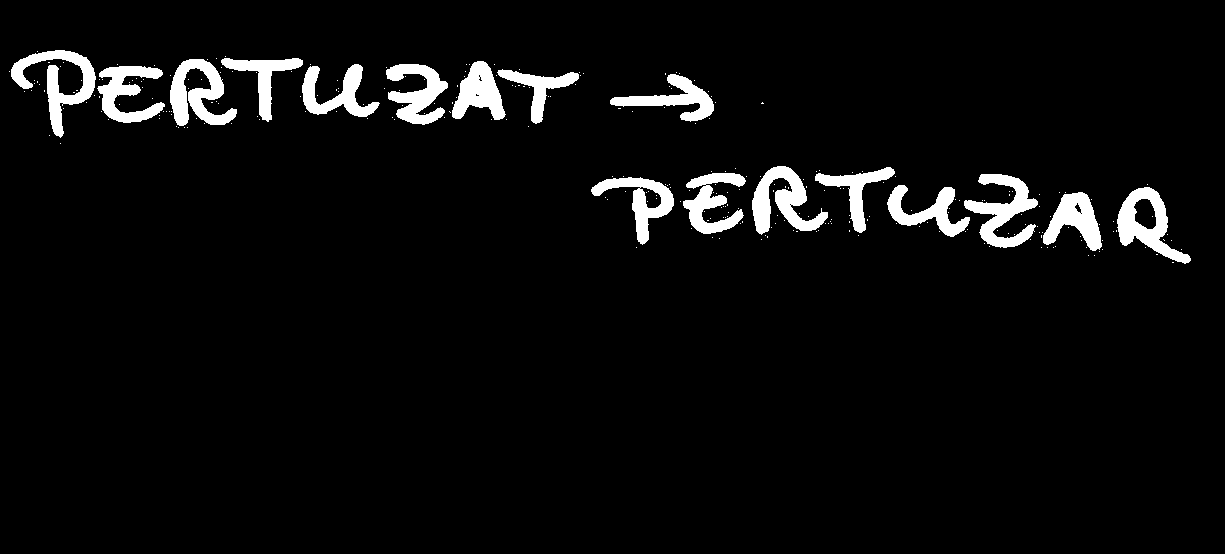 PERTUZAT →
PERTUZAR